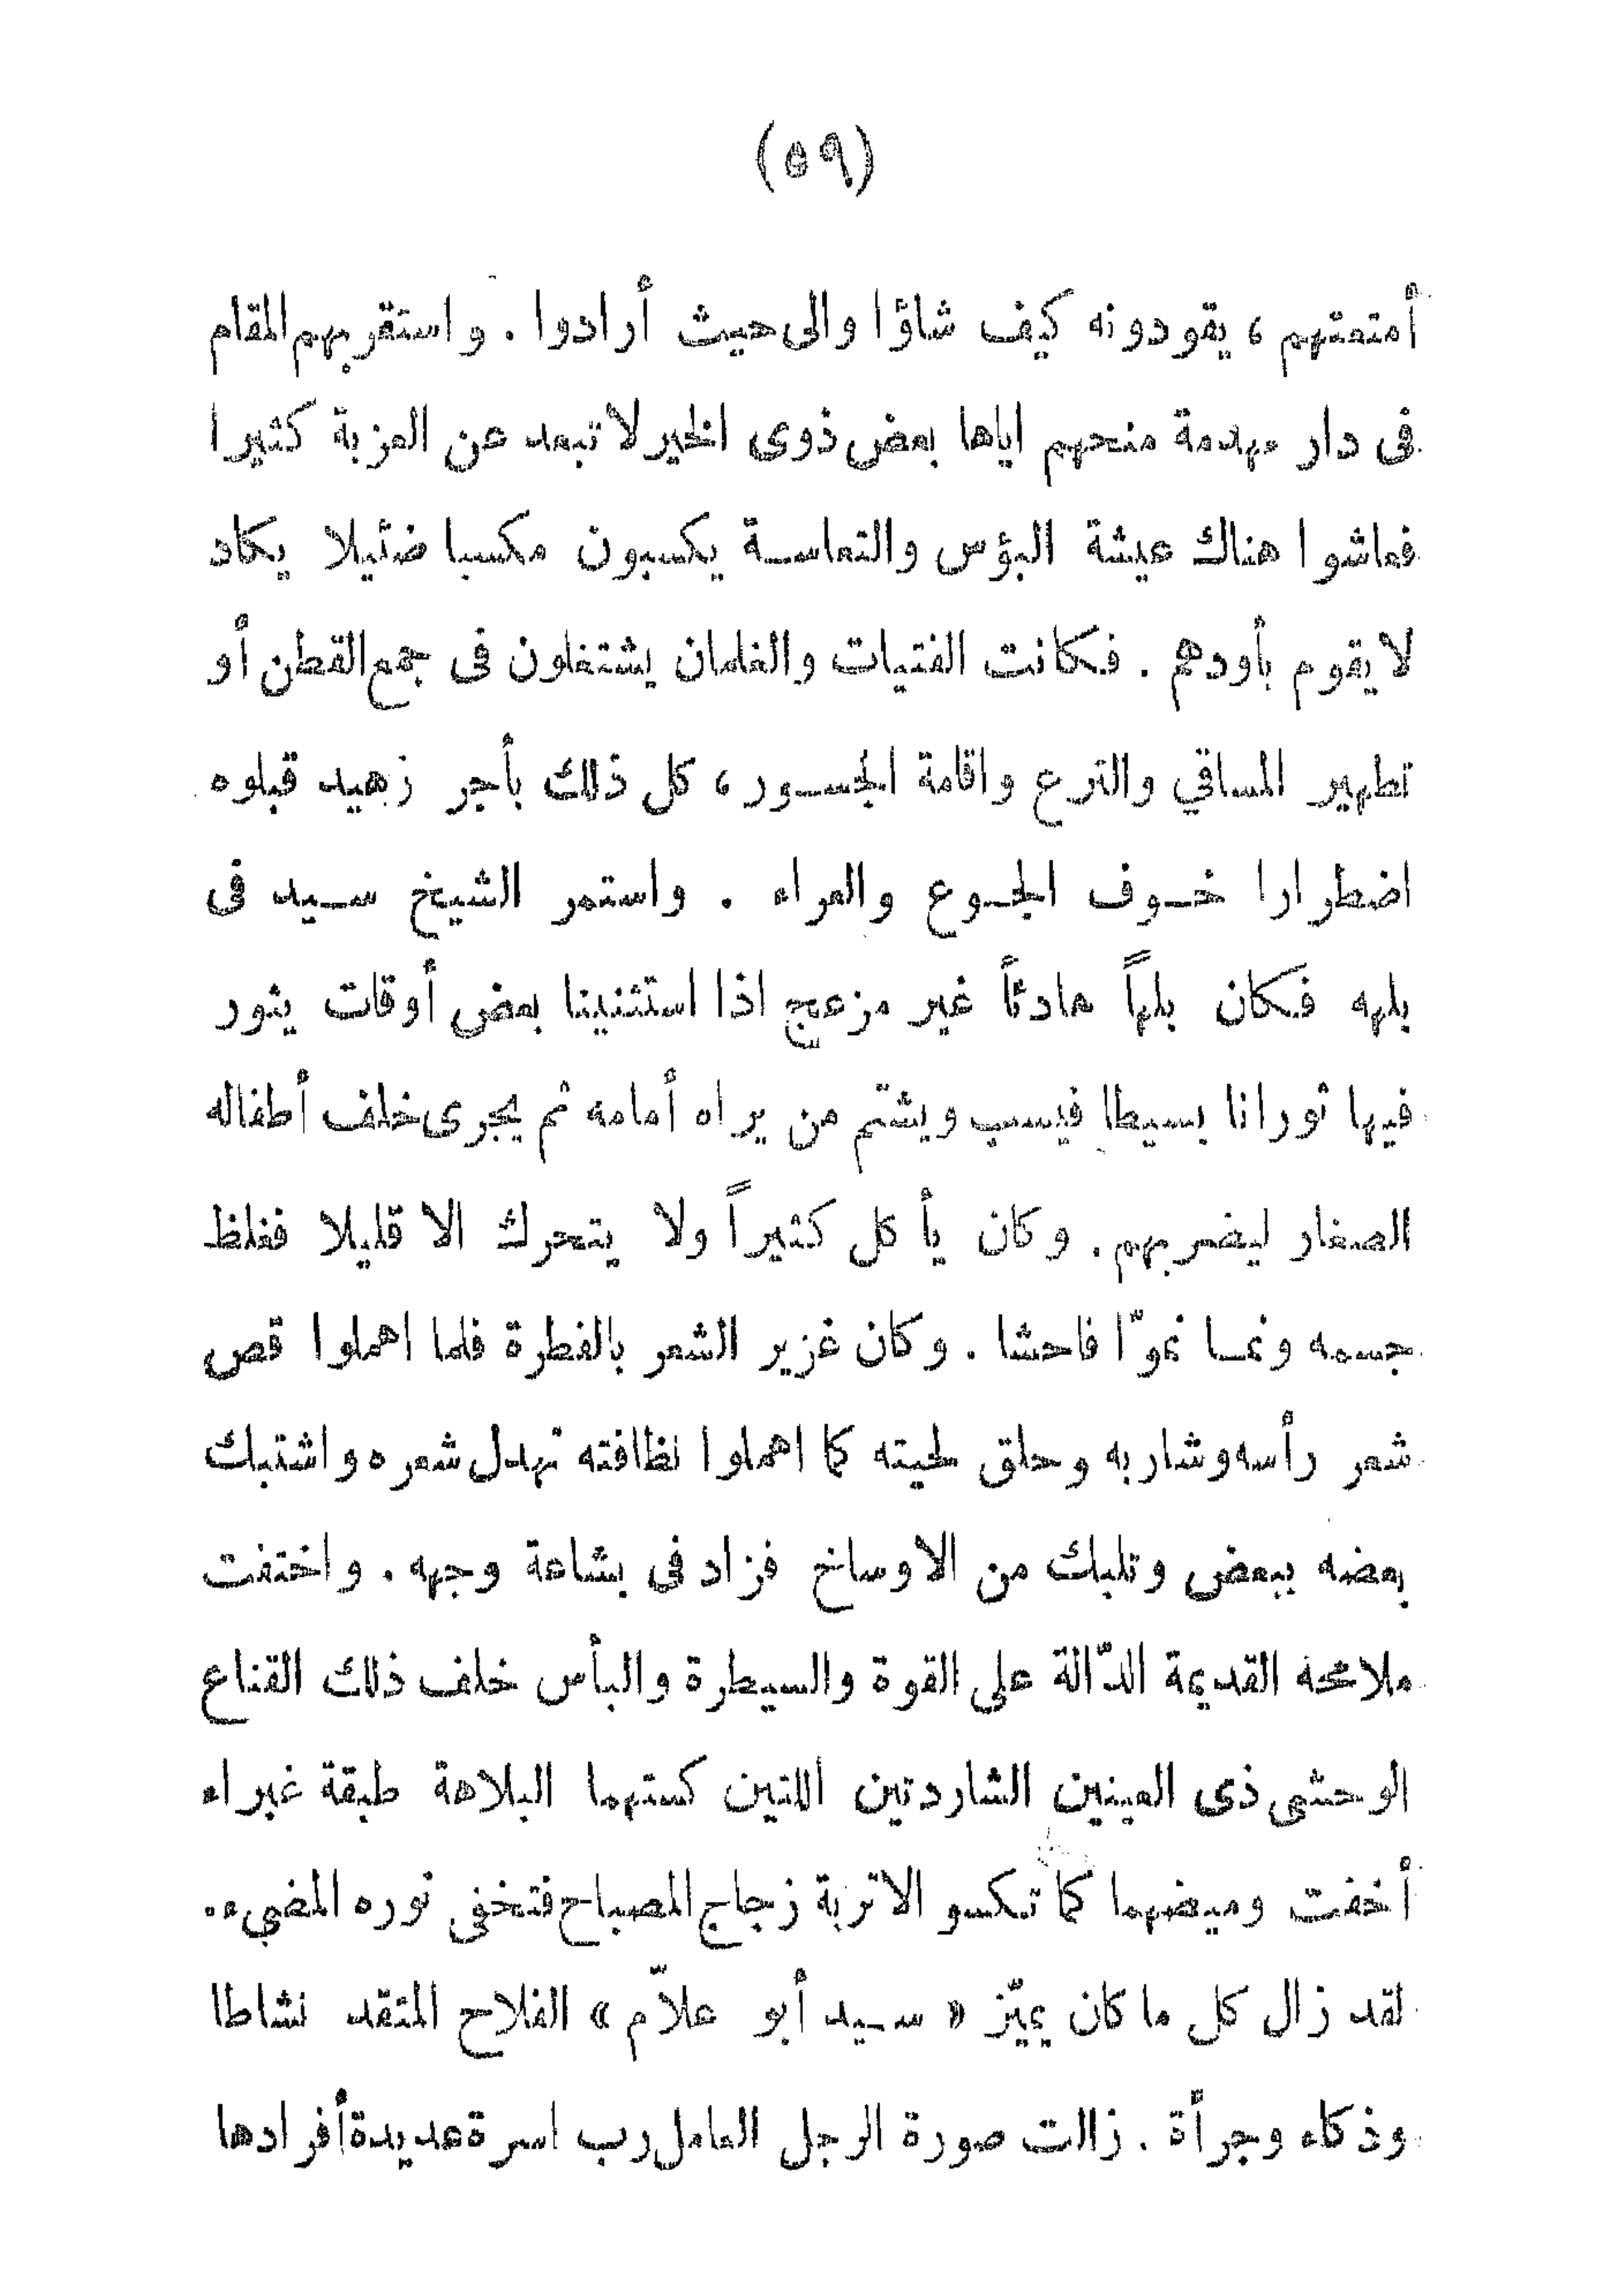 (٥٩)
أمتعتهم ، يقودونه كيف شاؤا والى حيث أرادوا . واستقر بهم المقام
فى دار مهدمة منحهم اياها بعض ذوى الخير لا تبعد عن العزبة كثيرا
فعاشوا هناك عيشة البؤس والتعاسة يكسبون مكسبا ضئيلا يكاد
لا يقوم بأودهم . فكانت الفتيات والغلمان يشتغلون فى جمع القطن أو
تطهير المساقي والترع واقامة الجسور ، كل ذلك بأجر زهيد قبلوه
اضطرارا خوف الجوع والعراء . واستمر الشيخ سيد فى
بلهه فكان بلهاً هادئاً غير مزعج اذا استثنينا بعض أوقات يثور
فيها ثورانا بسيطا فيسب ويشتم من يراه أمامه ثم يجرى خلف أطفاله
الصغار ليضربهم . وكان يأكل كثيراً ولا يتحرك الا قليلا فغلظ
جسمه ونما نموّا فاحشا . وكان غزير الشعر بالفطرة فلما اهملوا قص
شعر رأسه وشاربه وحلق لحيته كما اهملوا نظافته تهدل شعره واشتبك
بعضه ببعض وتلبك من الاوساخ فزاد فى بشاعة وجهه . واختفت
ملامحه القديمة الدّالة على القوة والسيطرة والبأس خلف ذلك القناع
الوحشى ذى العينين الشاردتين اللتين كستهما البلاهة طبقة غبراء
أخفت وميضهما كما تكسو الاتربة زجاج المصباح فتخفى نوره المضيء .
لقد زال كل ما كان يميّز « سيد أبو علاّم » الفلاح المتقد نشاطا
وذكاء وجرأة . زالت صورة الرجل العامل رب اسرة عديدة أفرادها